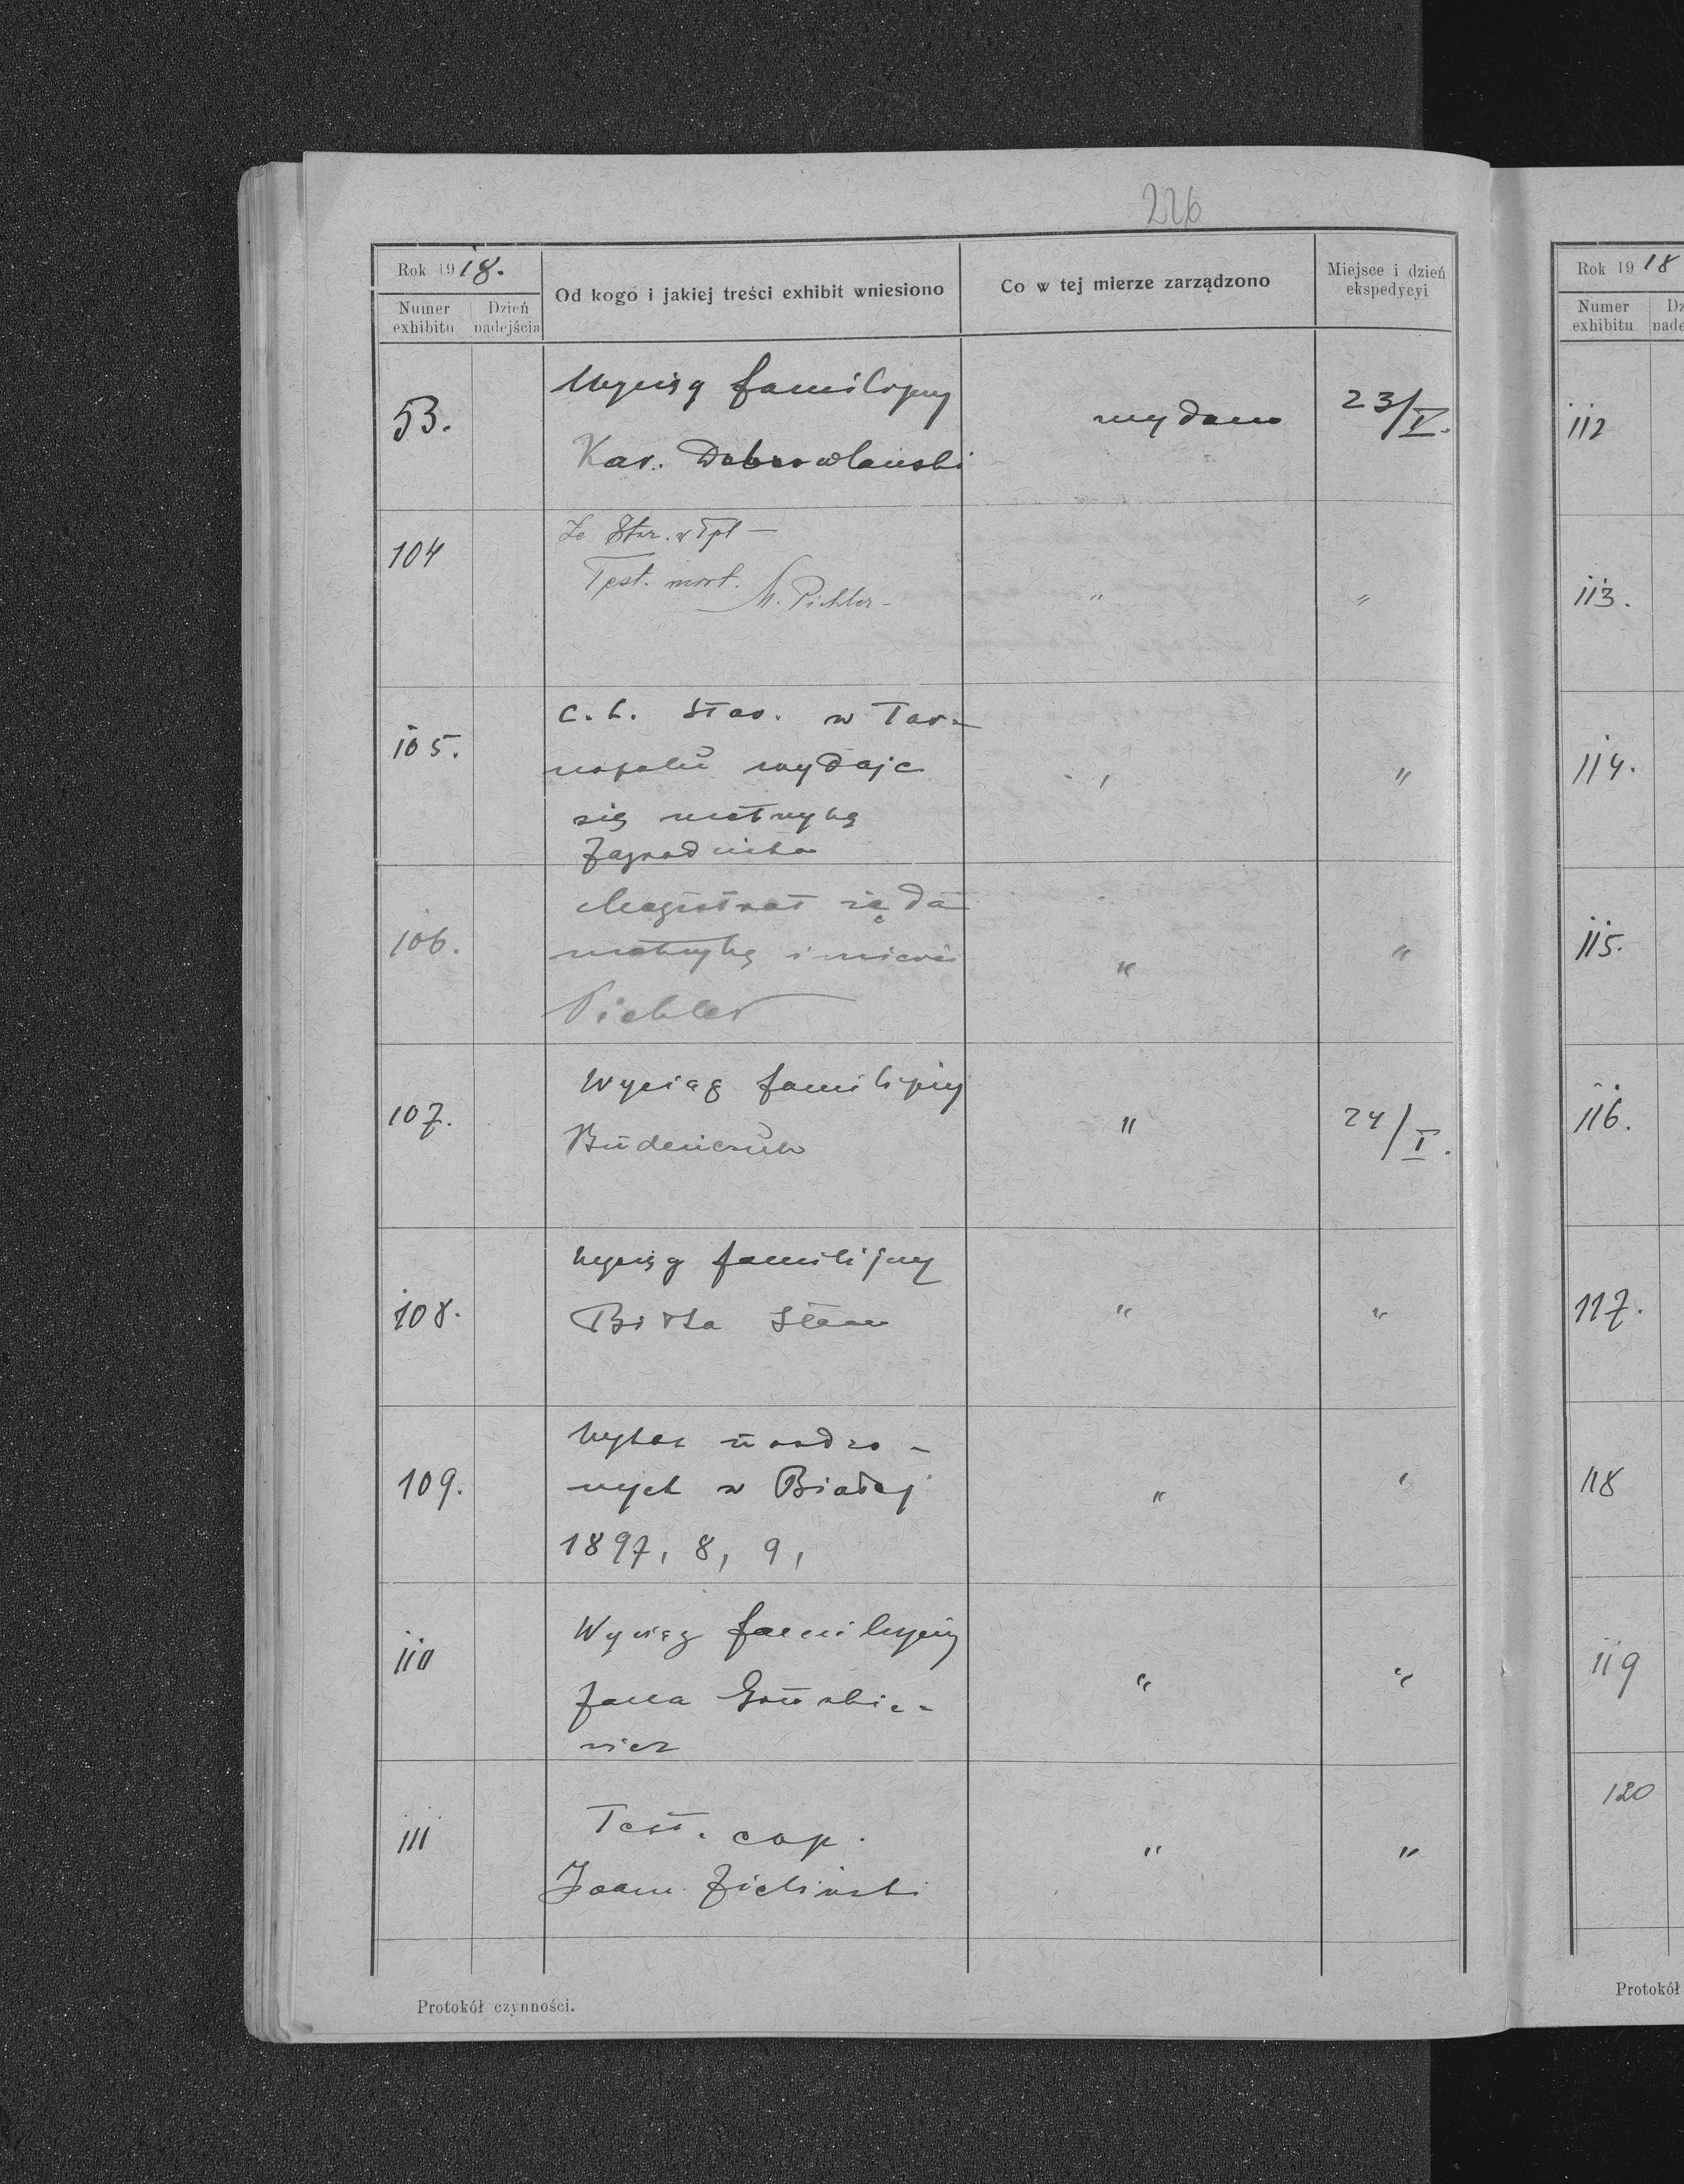 226
Rok 1918.
Numer exhibitu
Dzień nadejścia
Od kogo i jakiej treści exhibit wniesiono
Co w tej mierze zarządzono
Miejsce i dzień ekspedycyi
53.
Wyciąg familijny
Kar. Dobrowlański
wydano
23/I.
104
Ze Star. w Tpl –
Test. mort.
M. Pichler –
"
"
105.
c. k. Star. w Tar-
nopolu wydaje
się metrykę
Zagrodnika
"
"
106.
Magistrat żąda
metrykę śmierci
Pichler
"
"
107.
Wyciąg familijny
"
24/I.
108.
Wyciąg familijny
"
"
109.
Wykaz urodzo-
nych w Białej
1897, 8, 9,
"
"
110
Wyciąg familijny
Jana
wicz
"
"
111
Test. cop.
Joann. Zieliński
"
"
Protokół czynności.
Rok 1918
Numer exhibitu
Dz
nade
112
113.
114.
115.
116.
117.
118
119
120
Protokół